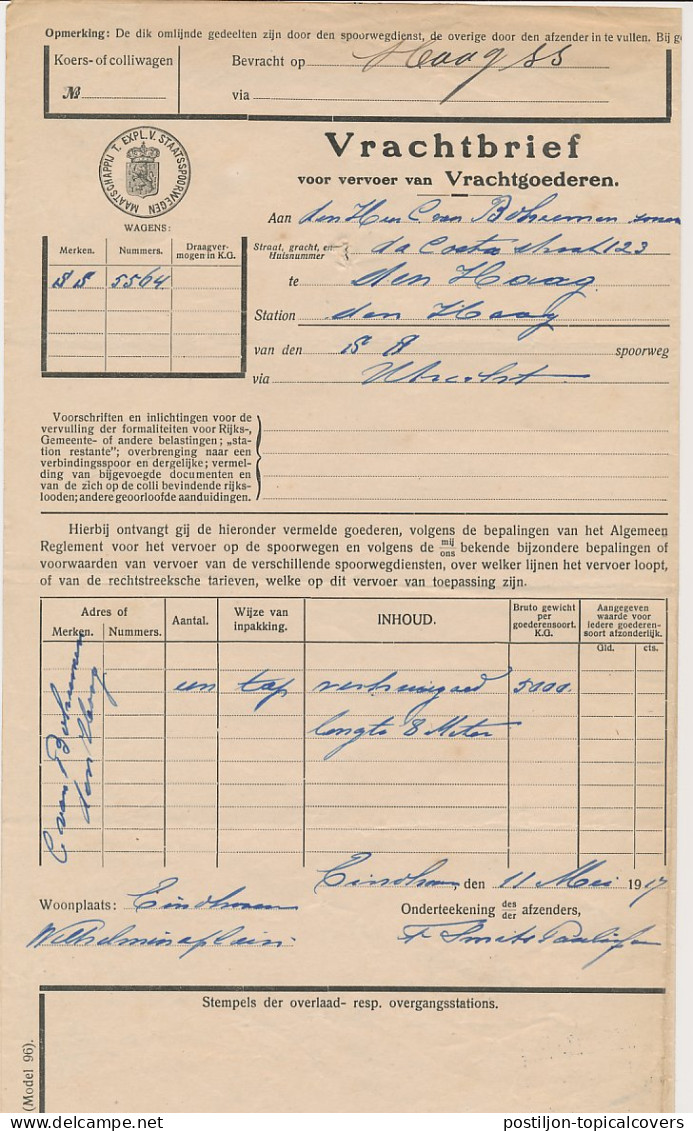 Opmerking: De dik omlijnde gedeelten zijn door den spoorwegdienst, de overige door den afzender in te vullen. Bij g
Koers- of colliwagen
№
Bevracht op Haag SS
via
MAATSCHAPPIJ T. EXPL. V. STAATSSPOORWEGEN
Vrachtbrief
voor vervoer van Vrachtgoederen.
WAGENS:
Merken. Nummers. Draagver-
mogen in K.G.
SS 5564
Aan den Heer C. van Bohemen
Straat, gracht, en
Huisnummer da Costa straat 123
te den Haag
Station den Haag
van den SS spoorweg
via Utrecht
Voorschriften en inlichtingen voor de
vervulling der formaliteiten voor Rijks-,
Gemeente- of andere belastingen; „sta-
tion restante"; overbrenging naar een
verbindingsspoor en dergelijke; vermel-
ding van bijgevoegde documenten en
van de zich op de colli bevindende rijks-
looden; andere geoorloofde aanduidingen.
Hierbij ontvangt gij de hieronder vermelde goederen, volgens de bepalingen van het Algemeen
Reglement voor het vervoer op de spoorwegen en volgens de mij ons bekende bijzondere bepalingen of
voorwaarden van vervoer van de verschillende spoorwegdiensten, over welker lijnen het vervoer loopt,
of van de rechtstreeksche tarieven, welke op dit vervoer van toepassing zijn.
Adres of
Merken. Nummers.
Aantal.
Wijze van
inpakking.
INHOUD.
Bruto gewicht
per
goederensoort.
K.G.
Aangegeven
waarde voor
iedere goederen-
soort afzonderlijk.
Gld. cts.
C van Bohemen
den Haag
een tap verhuisgoed 5000
lengte 8 Meter
Eindhoven, den 11 Mei 1917
Woonplaats: Eindhoven
Onderteekening des der afzenders,
Wilhelminaplein
F Smits
Stempels der overlaad- resp. overgangsstations.
(Model 96).
postiljon-topicalcovers